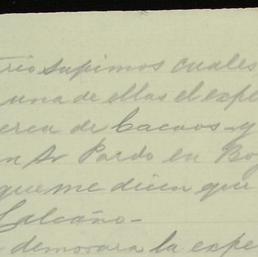 rio supimos cuales
una de ellas el expe
erca de Cacaos y
n Sr Pardo en Bog
que me dicen que
Salcaño-
demorara la expe